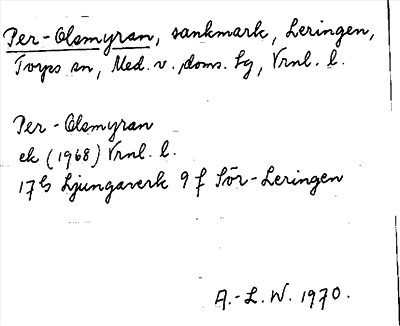 Per-Olsmyran, sankmark, Leringen,
Torps sn, Med. v. doms. lg, Vrnl. l.
Per-Olsmyran
ek (1968) Vrnl. l.
17G Ljungaverk 9 f Sör-Leringen
A.-L. W. 1970.